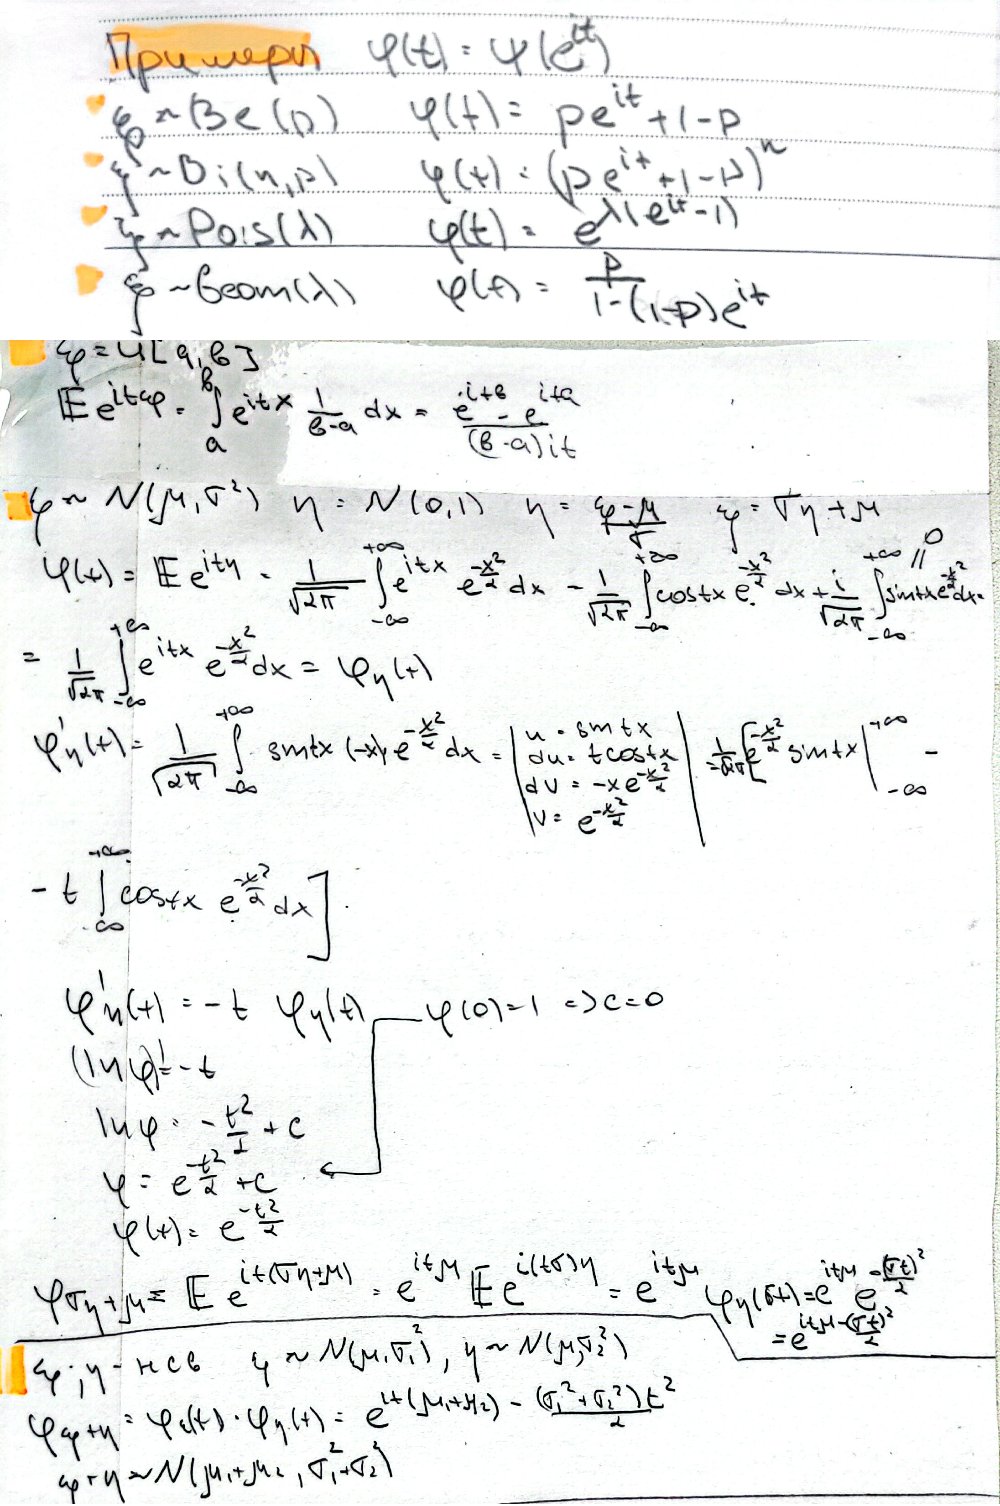 Примеры φ(t) = ψ(e^{it})
ξ ~ Be(p) φ(t) = pe^{it} + 1-p
ξ ~ Bi(n,p) φ(t) = (pe^{it} + 1-p)^n
ξ ~ Pois(λ) φ(t) = e^{λ(e^{it}-1)}
ξ ~ Geom(λ) φ(t) = \frac{p}{1-(1-p)e^{it}}
ξ = U[a,b]
𝔼e^{itξ} = \int_a^b e^{itx} \frac{1}{b-a} dx = \frac{e^{itb} - e^{ita}}{(b-a)it}
ξ ~ N(μ,σ²) η = N(0,1) η = \frac{ξ-μ}{σ} ξ = ση+μ
φ(t) = 𝔼e^{itη} = \frac{1}{\sqrt{2π}} \int_{-∞}^{+∞} e^{itx} e^{-\frac{x²}{2}} dx = \frac{1}{\sqrt{2π}} \int_{-∞}^{+∞} cos tx e^{-\frac{x²}{2}} dx + \frac{i}{\sqrt{2π}} \int_{-∞}^{+∞} sin tx e^{-\frac{x²}{2}} dx = 0
= \frac{1}{\sqrt{2π}} \int_{-∞}^{+∞} e^{itx} e^{-\frac{x²}{2}} dx = φ_η(t)
φ'_η(t) = \frac{1}{\sqrt{2π}} \int_{-∞}^{+∞} sin tx (-x) e^{-\frac{x²}{2}} dx = | u = sin tx
du = t cos tx
dv = -xe^{-\frac{x²}{2}}
v = e^{-\frac{x²}{2}} | = \frac{1}{\sqrt{2π}} [e^{-\frac{x²}{2}} sin tx |_{-∞}^{+∞} -
- t \int_{-∞}^{+∞} cos tx e^{-\frac{x²}{2}} dx].
φ'_η(t) = -t φ_η(t) φ(0)=1 => c=0
(ln φ)' = -t
ln φ = -\frac{t²}{2} + c
φ = e^{-\frac{t²}{2}} + c
φ(t) = e^{-\frac{t²}{2}}
φ_{ση+μ} = 𝔼e^{it(ση+μ)} = e^{itμ} 𝔼e^{i(tσ)η} = e^{itμ} φ_η(σt) = e^{itμ} e^{-\frac{(σt)²}{2}}
= e^{itμ-\frac{(σt)²}{2}}
ξ, η - нсв ξ ~ N(μ,σ₁²), η ~ N(μ,σ₂²)
φ_{ξ+η} = φ_ξ(t) · φ_η(t) = e^{it(μ₁+μ₂) - \frac{(σ₁²+σ₂²)t²}{2}}
ξ+η ~ N(μ₁+μ₂, σ₁²+σ₂²)